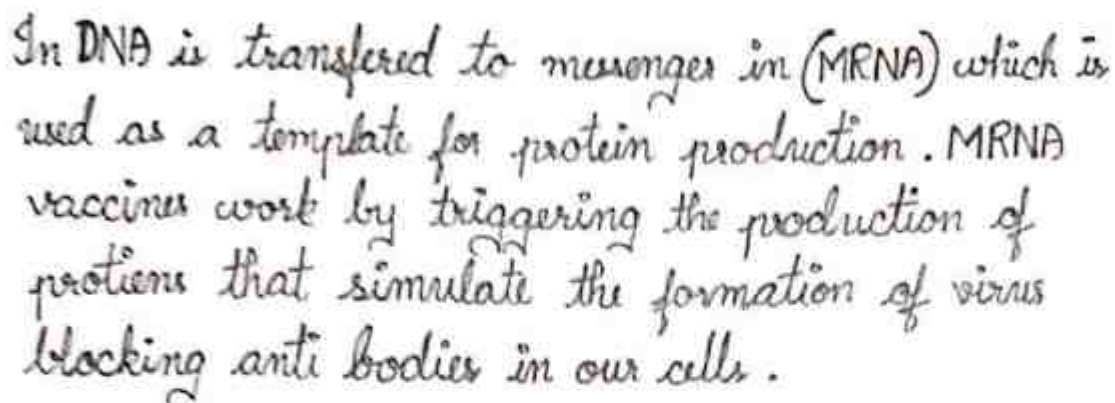 In DNA is transfered to messenger in (MRNA) which is
used as a template for protein production. MRNA
vaccines work by triggering the production of
protiens that simulate the formation of virus
blocking anti bodies in our cells.